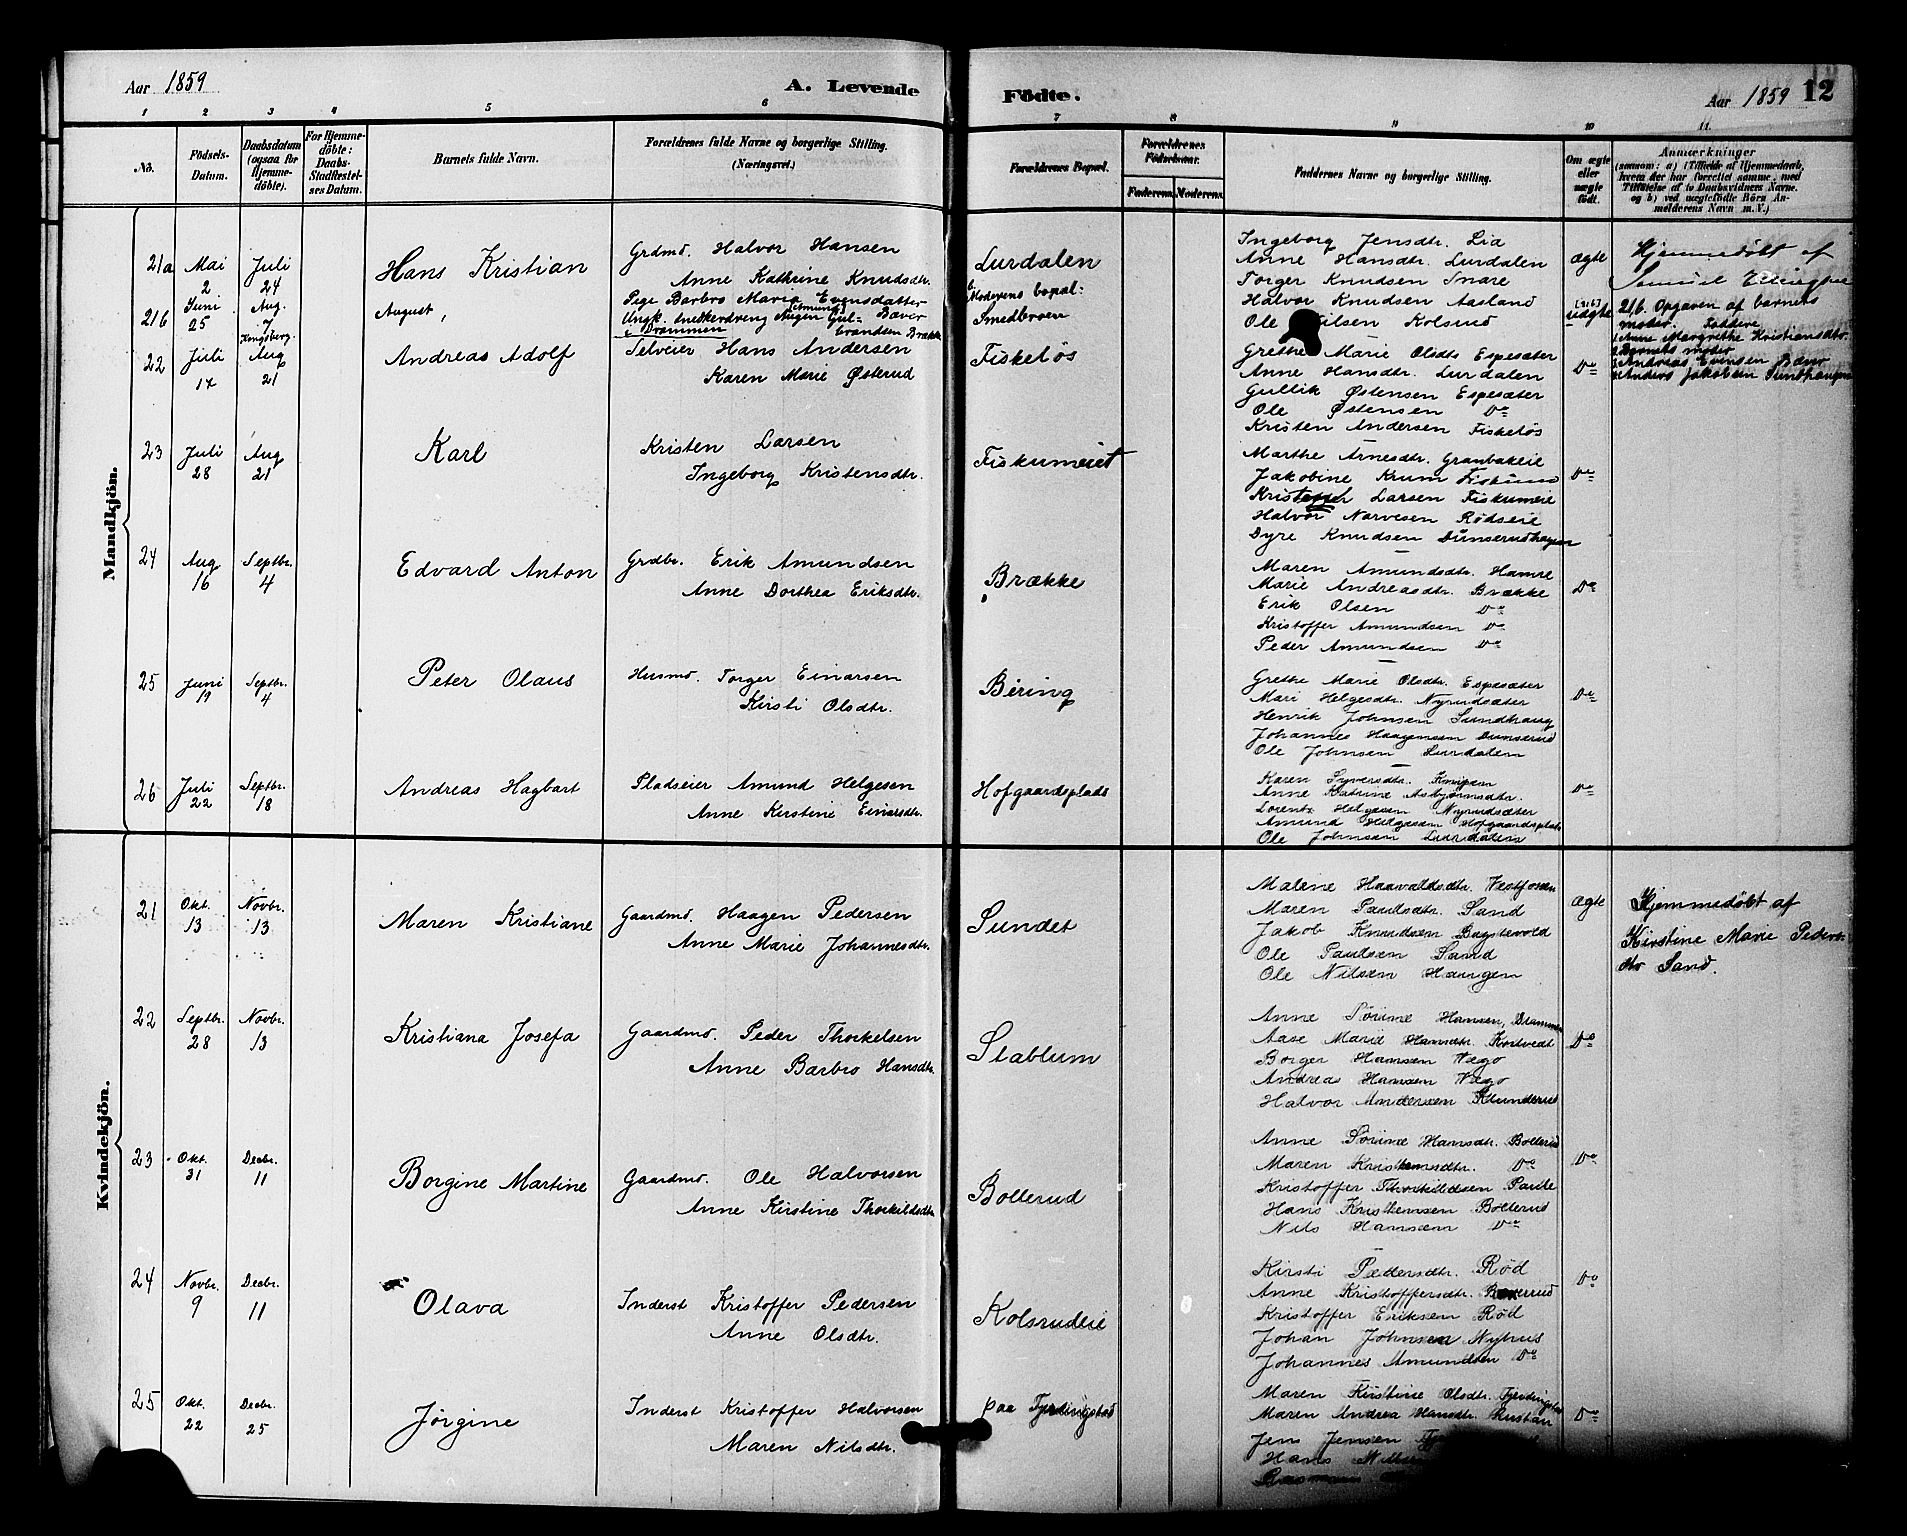 Aar 1859
A. Levende
Födte.
Aar 1859 12
1 2 3 4 5 6 7 8 9 10 11.
No.
Födsels-Datum.
Daabsdatum (ogsaa for Hjemmedöbte).
For Hjemmedöbte: Daabs-Stadfæstelses Datum.
Barnets fulde Navn.
Forældrenes fulde Navne og borgerlige Stilling. (Næringsvei.)
Forældrenes Bopæl.
Forældrenes Födselsaar.
Faderens. Moderens.
Faddernes Navne og borgerlige Stilling.
Om ægte eller uægte födt.
Anmærkninger
(saasom: a) i Tilfælde af Hjemmedaab, hvem der har forrettet samme, med Tilföielse af to Daabsvidners Navne. og b) ved uægtefödte Börn Anmelderens Navn m. V.)
Mandkjön.
21a Mai 2 Juli 24 Hans Kristian
Grdmd. Halvor Hansen
Anne Kathrine Knudsdtr.
Lurdalen
Ingeborg Jensdtr. Lia
Anne Hansdtr. Lurdalen
Torger Knudsen Snare
Halvor Knudsen Aasland
Ole Nilsen Kolsrud
ægte
Hjemmedøbt af
Samuel
21b Juni 25 Aug. 7 Kongsberg. August,
Pige Barbro Maria Evensdatter Bæver
Ungk. Snedkerdreng Gulbrandsen Brække
i Drammen
Moderens bopæl:
Smedbroen
uægte
21b. Opgaven af barnets
moder. Faddere
Anne Margrethe Kristiansdtr.
Barnets moder
Andreas Evensen Bæver
Anders Jakobsen Sundhaugen
22 Juli 17 Aug 21 Andreas Adolf
Selveier Hans Andersen
Karen Marie Østerud
Fiskeløs
Grethe Marie Olsdtr Espesæter
Anne Hansdtr. Lurdalen
Gullik Østensen Espesæter
Ole Østensen Do
Kristen Andersen Fiskeløs
Do
23 Juli 28 Aug 21 Karl
Kristen Larsen
Ingeborg Kristensdtr.
Fiskumeiet
Marthe Arnesdtr. Granbakeie
Jakobine Krum Fiskum
Kristoffer Larsen Fiskumeie
Halvor Narvesen Rødseie
Dyre Knudsen Dunserudhagen
Do
24 Aug 16 Septbr. 4 Edvard Anton
Grdbr. Erik Amundsen
Anne Dorthea Eriksdtr.
Brække
Maren Amundsdtr. Hamre
Marie Andreasdtr. Brække
Erik Olsen Do
Kristoffer Amundsen Do
Peder Amundsen Do
Do
25 Juni 19 Septbr. 4 Peter Olaus
Husmd. Torger Einarsen
Kirsti Olsdtr.
Béring
Grethe Marie Olsdtr. Espesæter
Mari Helgesdtr. Nyrudsæter
Henrik Johnsen Sundhaug
Johannes Haagensen Dunserud
Ole Johnsen Lurdalen
Do
26 Juli 22 Septbr. 18 Andreas Hagbart
Pladseier Amund Helgesen
Anne Kirstine Einarsdtr.
Hofgaardsplads
Karen Syversdtr.
Anne Katrine Asbjørnsdtr.
Lorentz Helgesen Nyrudsæter
Amund Helgesen Hofgaardsplads
Ole Johnsen Lurdalen
Do
Kvindekjön.
21 Okt. 13 Novbr. 13 Maren Kristiane
Gaardmd. Haagen Pedersen
Anne Marie Johannesdtr.
Sundet
Malene Haavaldsdtr. Vestfossen
Maren Paulsdtr. Sand
Jakob Knudsen Bøgstevold
Ole Paulsen Sand
Ole Nilsen Haugen
ægte
Hjemmedøbt af
Kirstine Marie Peders-
dtr Sand.
22 Septbr. 28 Novbr. 13 Kristiana Josefa
Gaardmd. Peder Thorkelsen
Anne Barbro Hansdtr.
Stablum
Anne Sørine Hansen, Drammen
Aase Marie Hansdtr. Kortvedt
Borger Hansen Wego
Andreas Hansen Wego
Halvor Andersen Klunderud
Do
23 Okt. 31 Decbr. 11 Borgine Martine
Gaardmd. Ole Halvorsen
Anne Kirstine Thorkildsdtr.
Bollerud
Anne Sørine Hansdtr. Bollerud
Maren Kristensdtr. Do
Kristoffer Thorkildsen Parite
Hans Kristensen Bollerud
Nils Hansen Do
Do
24 Novbr. 9 Decbr. 11 Olava
Inderst Kristoffer Pedersen
Anne Olsdtr.
Kolsrudeie
Kirsti Pedersdtr. Rød
Anne Kristoffersdtr.
Kristoffer Eriksen Rød
Johan Johnsen Nyhus
Johannes Amundsen Do
Do
25 Okt. 22 Decbr. 25 Jørgine
Inderst Kristoffer Halvorsen
Maren Nilsdtr.
paa Tjerdingstad
Maren Kirstine Olsdtr. Tjerdingstad
Maren Andrea Hansdtr. Rustan
Jens Jensen
Hans
Do